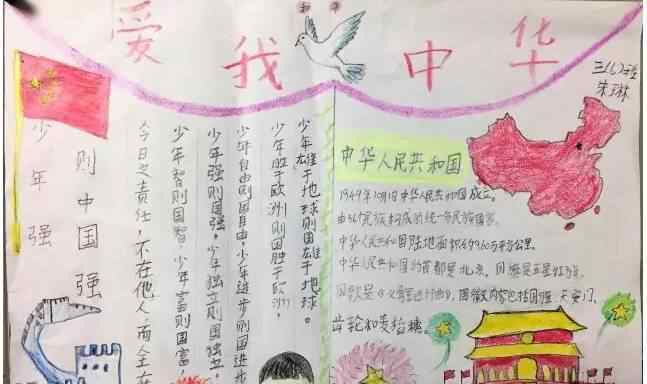 和平
爱我中华
三(1)班
朱琳
少年强
则中国强
今日之责任,不在他人,而全在
少年智则国智,少年富则国富,
少年强则国强,少年独立则国独立,
少年自由则国自由,少年进步则国进步
少年胜于欧洲则国胜于欧洲,
少年雄于地球则国雄于地球。
中华人民共和国
1949年10月1日中华人民共和国成立。
由56个民族构成的统一多民族国家。
中华人民共和国陆地面积约960万平方公里。
中华人民共和国的首都是北京。国旗是五星红旗,
国歌是《义勇军进行曲》,国徽内容包括国旗、天安门、
齿轮和麦稻穗。